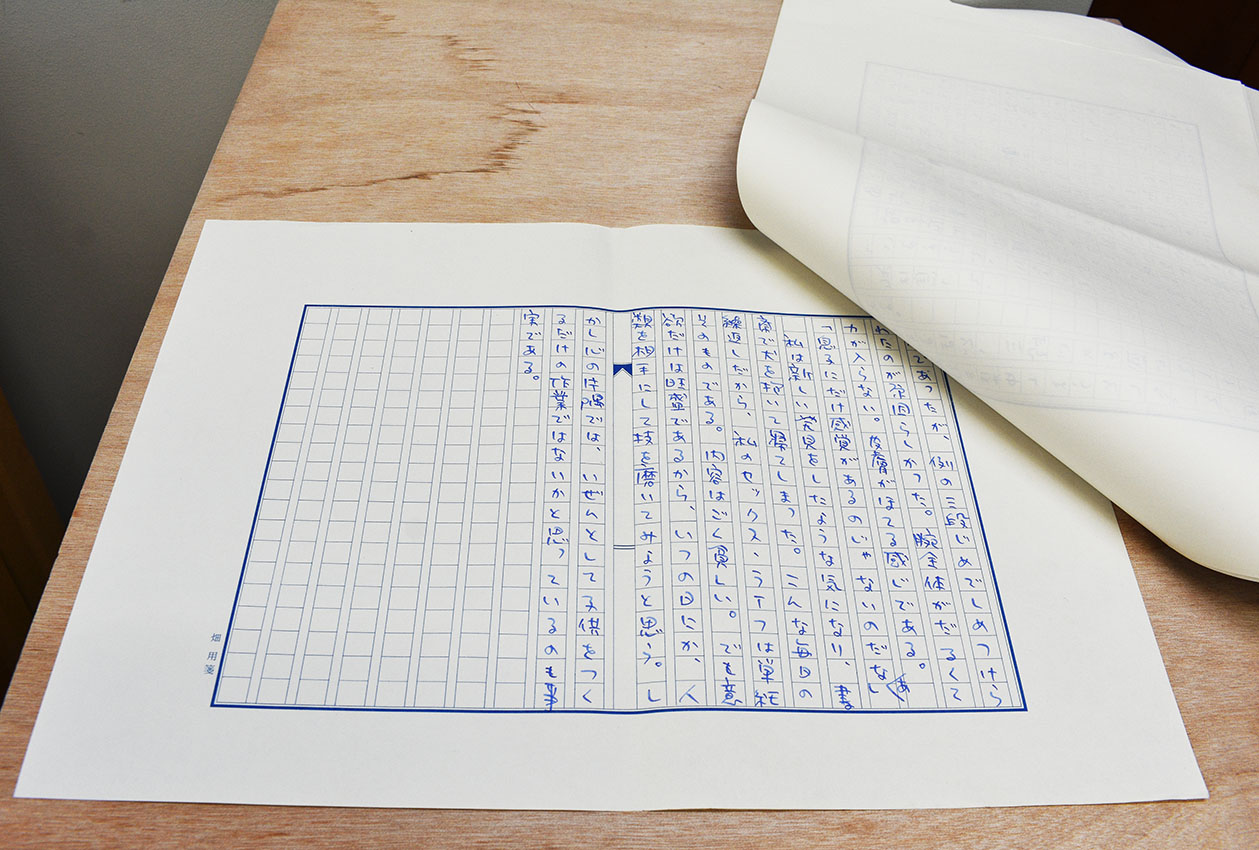 であったが、例の三段じめでしめつけら
れたのが原因らしかった。腕全体がだるくて
力が入らない。皮膚がほてる感じである。
だけ感覚があるのじゃないのだな」
私は新しい発見をしたような気になり、書
斎で犬を抱いて寝てしまった。こんな毎日の
繰返しだから、私のセックス・ライフは単純
そのものである。内容はごく貧しい。でも意
欲だけは旺盛であるから、いつの日にか、人
類を相手にして技を磨いてみようと思う。し
かし心の片隅では、いぜんとして子供をつく
るだけの作業ではないかと思っているのも事
実である。
畑用箋